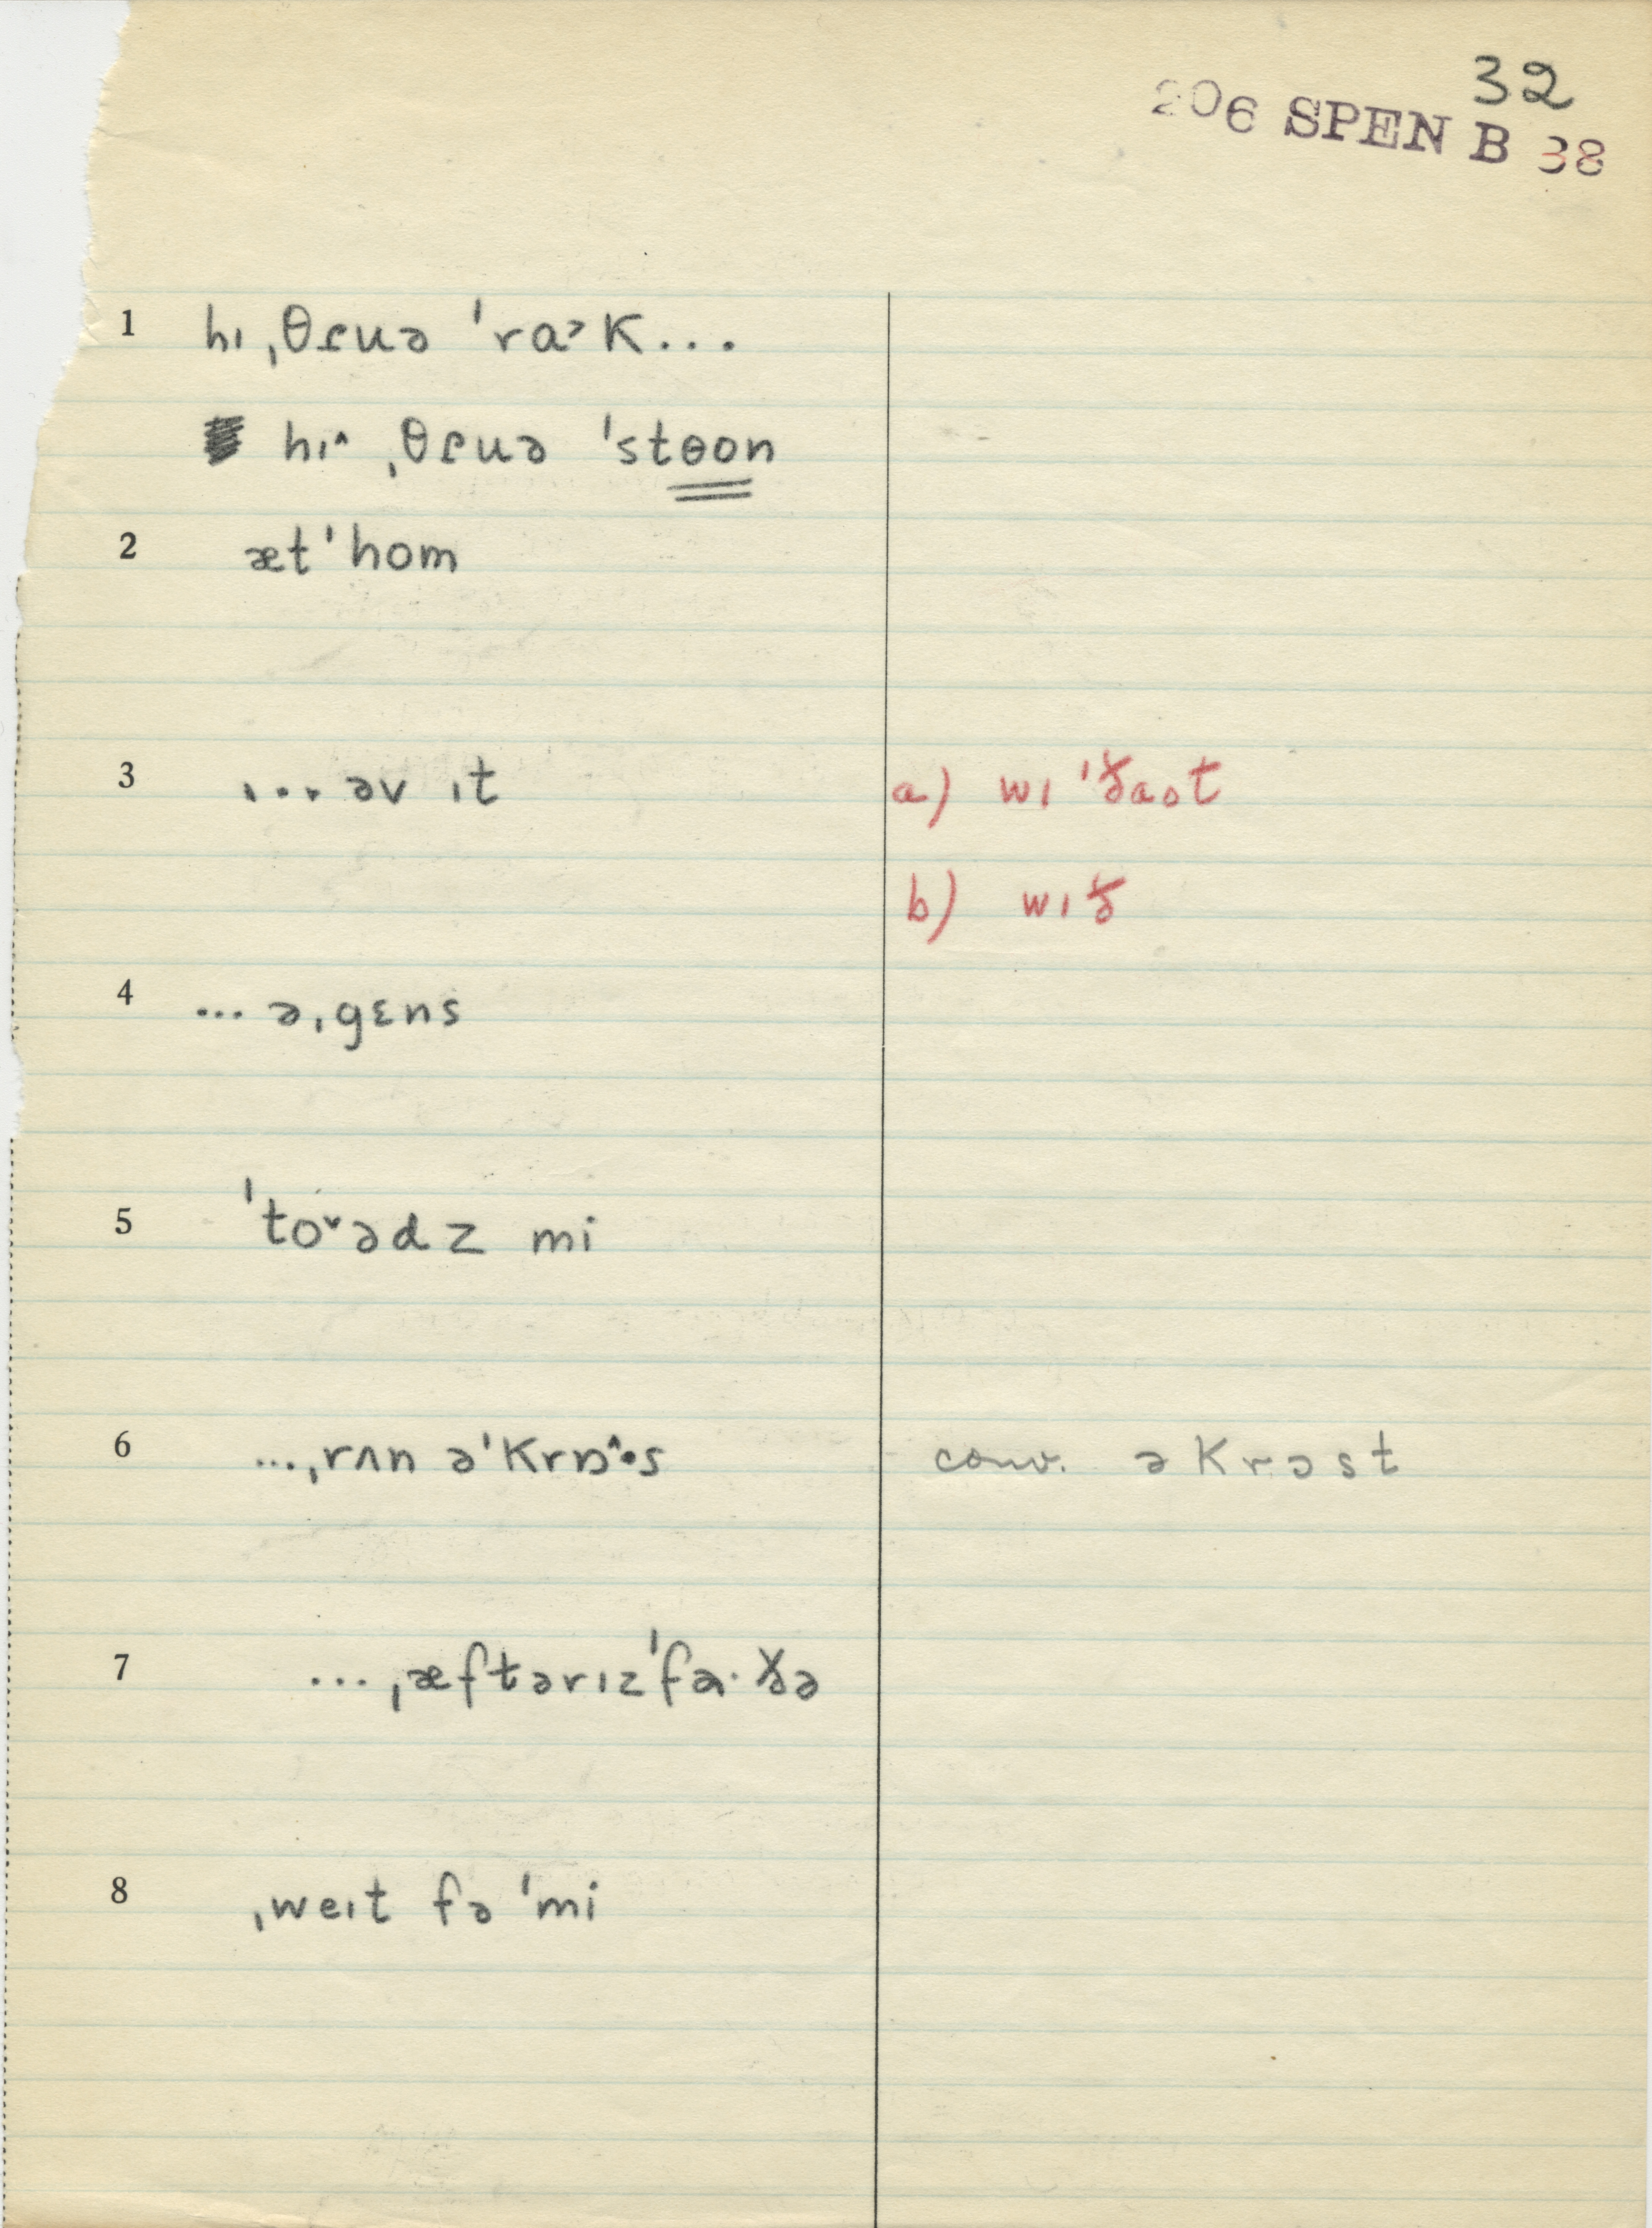 32
206 SPEN B 38
1 hɪ ˌθɾuə ˈra˃k...
hɪ˄ ˌθɾuə ˈstɵon
2 æt ˈhom
3 ... əv ɪt a) wɪ ˈðaot
b) wɪð
4 ... əˌgɛns
5 ˈto˅ədz mi
6 ...ˌrʌn əˈkrɒ˄·s conv. əkrɔst
7 ...ˌæftərɪzˈfa·ðə
8 ˌweɪt fə ˈmi